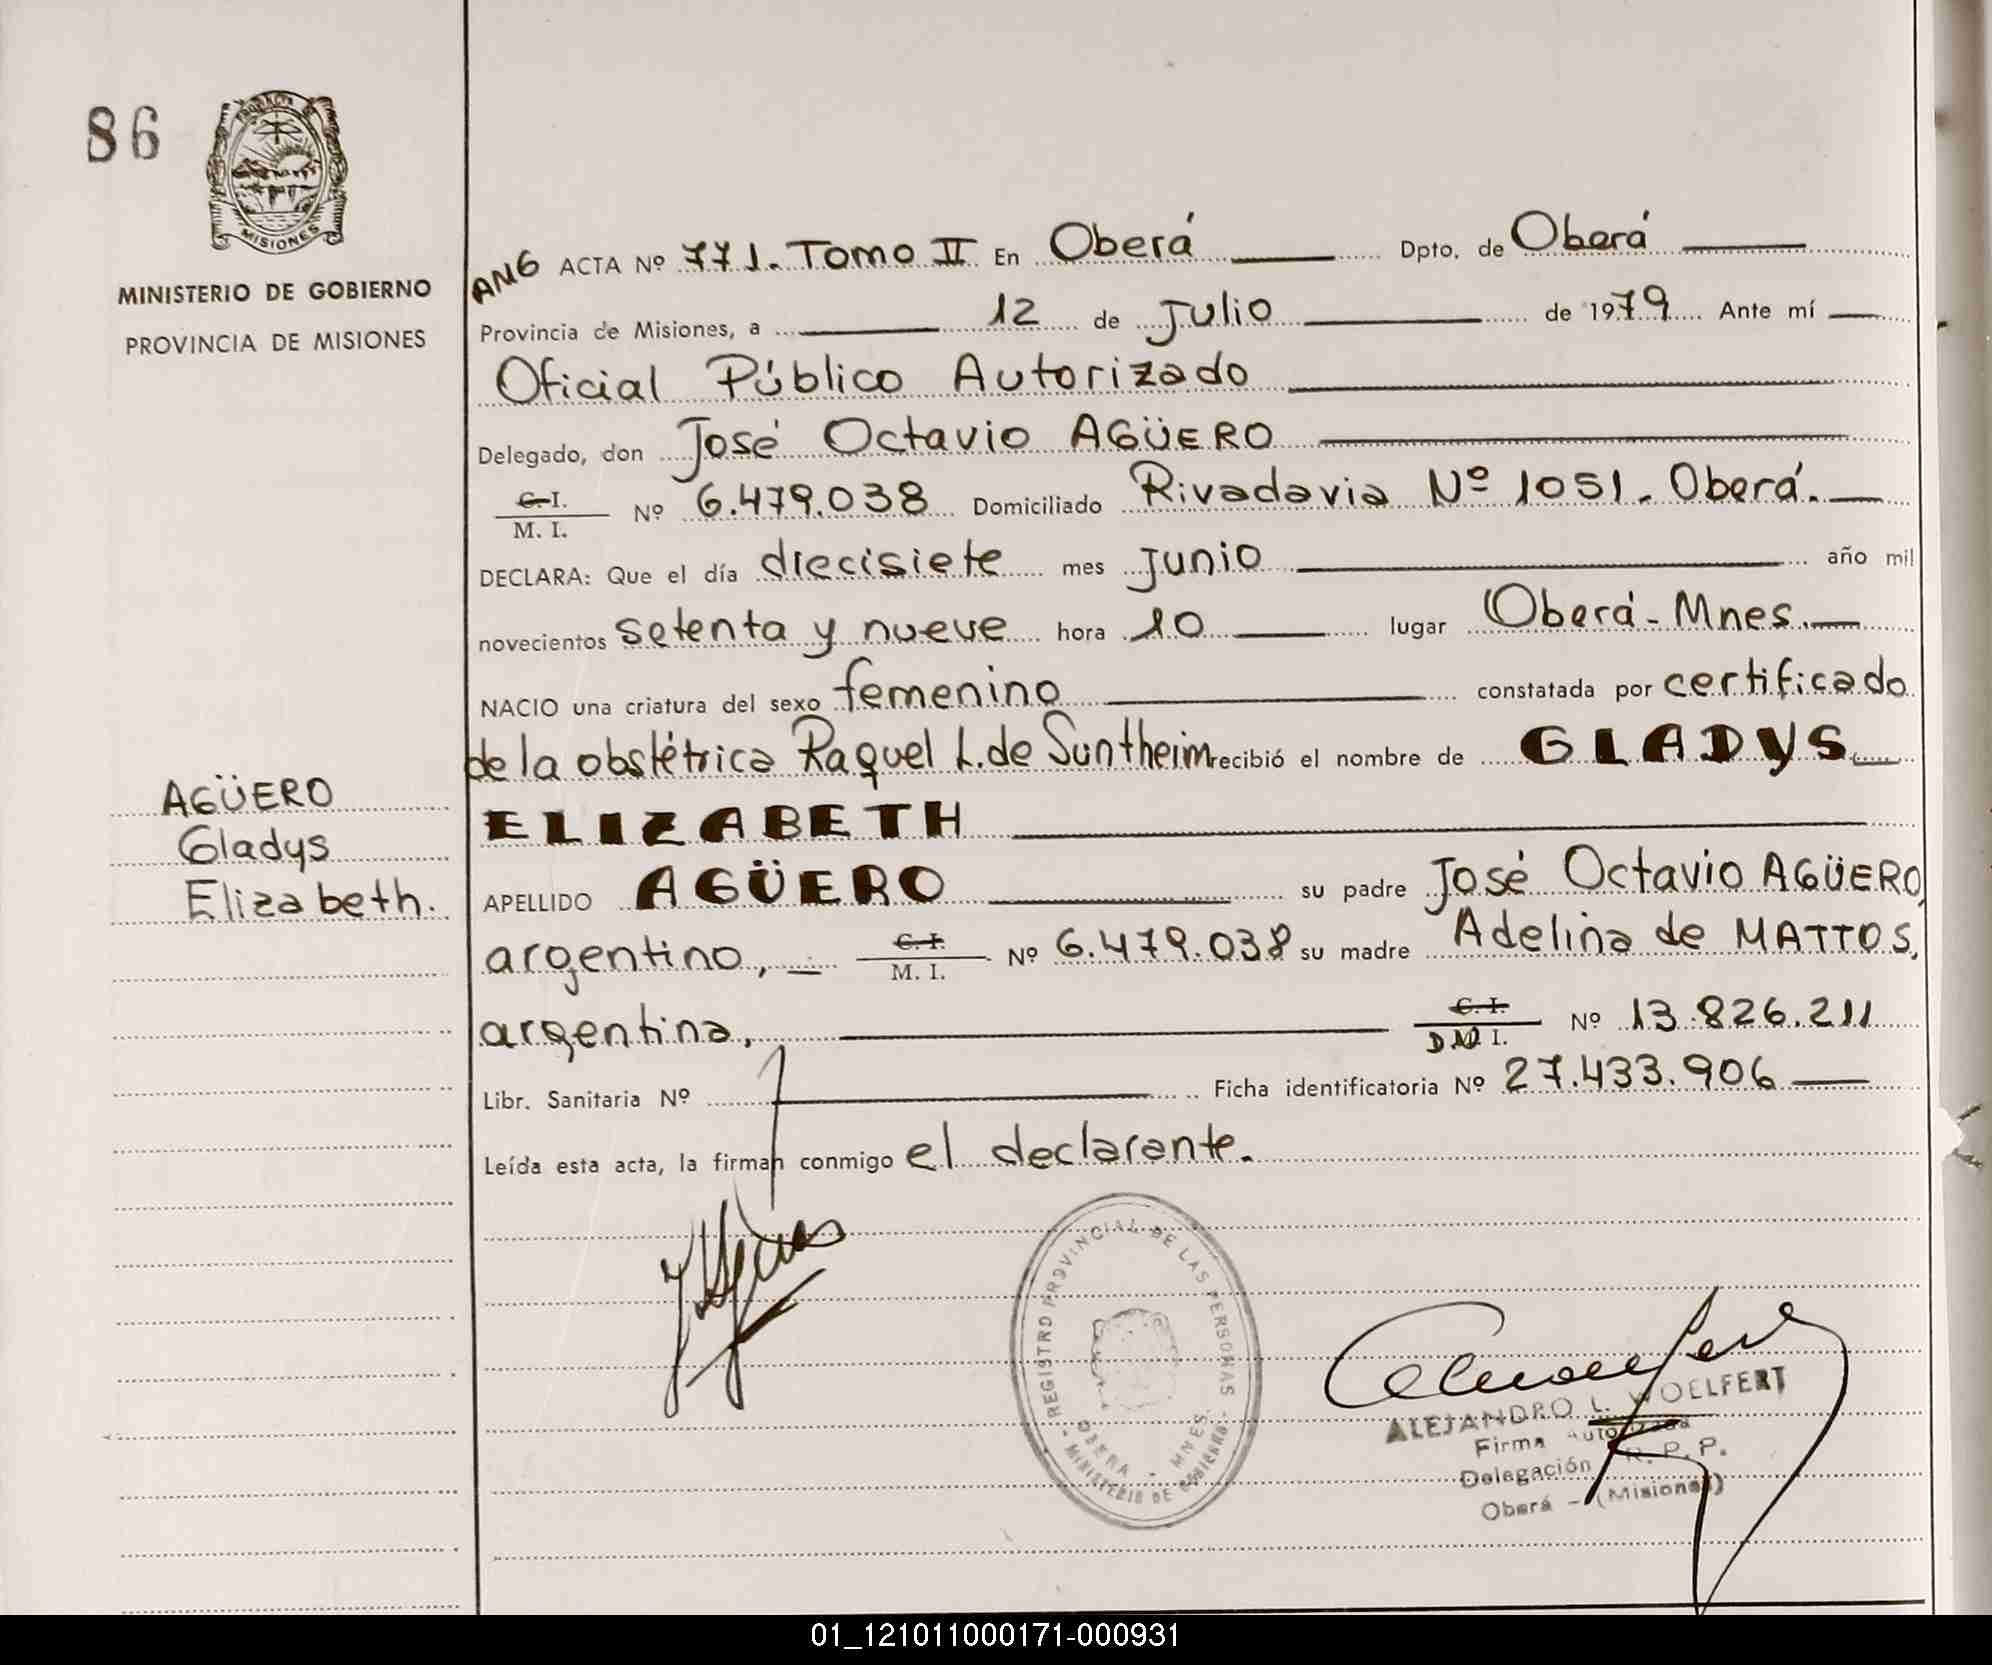 86
MISIONES
MINISTERIO DE GOBIERNO
PROVINCIA DE MISIONES
AGÜERO
Gladys
Elizabeth.
ANG ACTA Nº 771. Tomo II En Oberá Dpto. de Oberá
Provincia de Misiones, a 12 de Julio de 1979 Ante mí
Oficial Público Autorizado
Delegado, don José Octavio AGÜERO
C. I.
M. I. Nº 6.479.038 Domiciliado Rivadavia Nº 1051. Oberá.
DECLARA: Que el día diecisiete mes Junio año mil
novecientos setenta y nueve hora 10 lugar Oberá - Mnes.
NACIO una criatura del sexo femenino constatada por certificado
de la obstétrica Raquel L. de Suntheim recibió el nombre de GLADYS
ELIZABETH
APELLIDO AGÜERO su padre José Octavio AGÜERO,
argentino, C. I. M. I. Nº 6.479.038 su madre Adelina de MATTOS,
argentina, C. I. D.N.I. Nº 13.826.211
Libr. Sanitaria Nº Ficha identificatoria Nº 27.433.906
Leída esta acta, la firman conmigo el declarante.
REGISTRO PROVINCIAL DE LAS PERSONAS
OBERA - MNES.
- MINISTERIO DE GOBIERNO -
ALEJANDRO L. WOELFERT
Firma Autorizada
Delegación R. P. P.
Oberá - (Misiones)
01_121011000171-000931